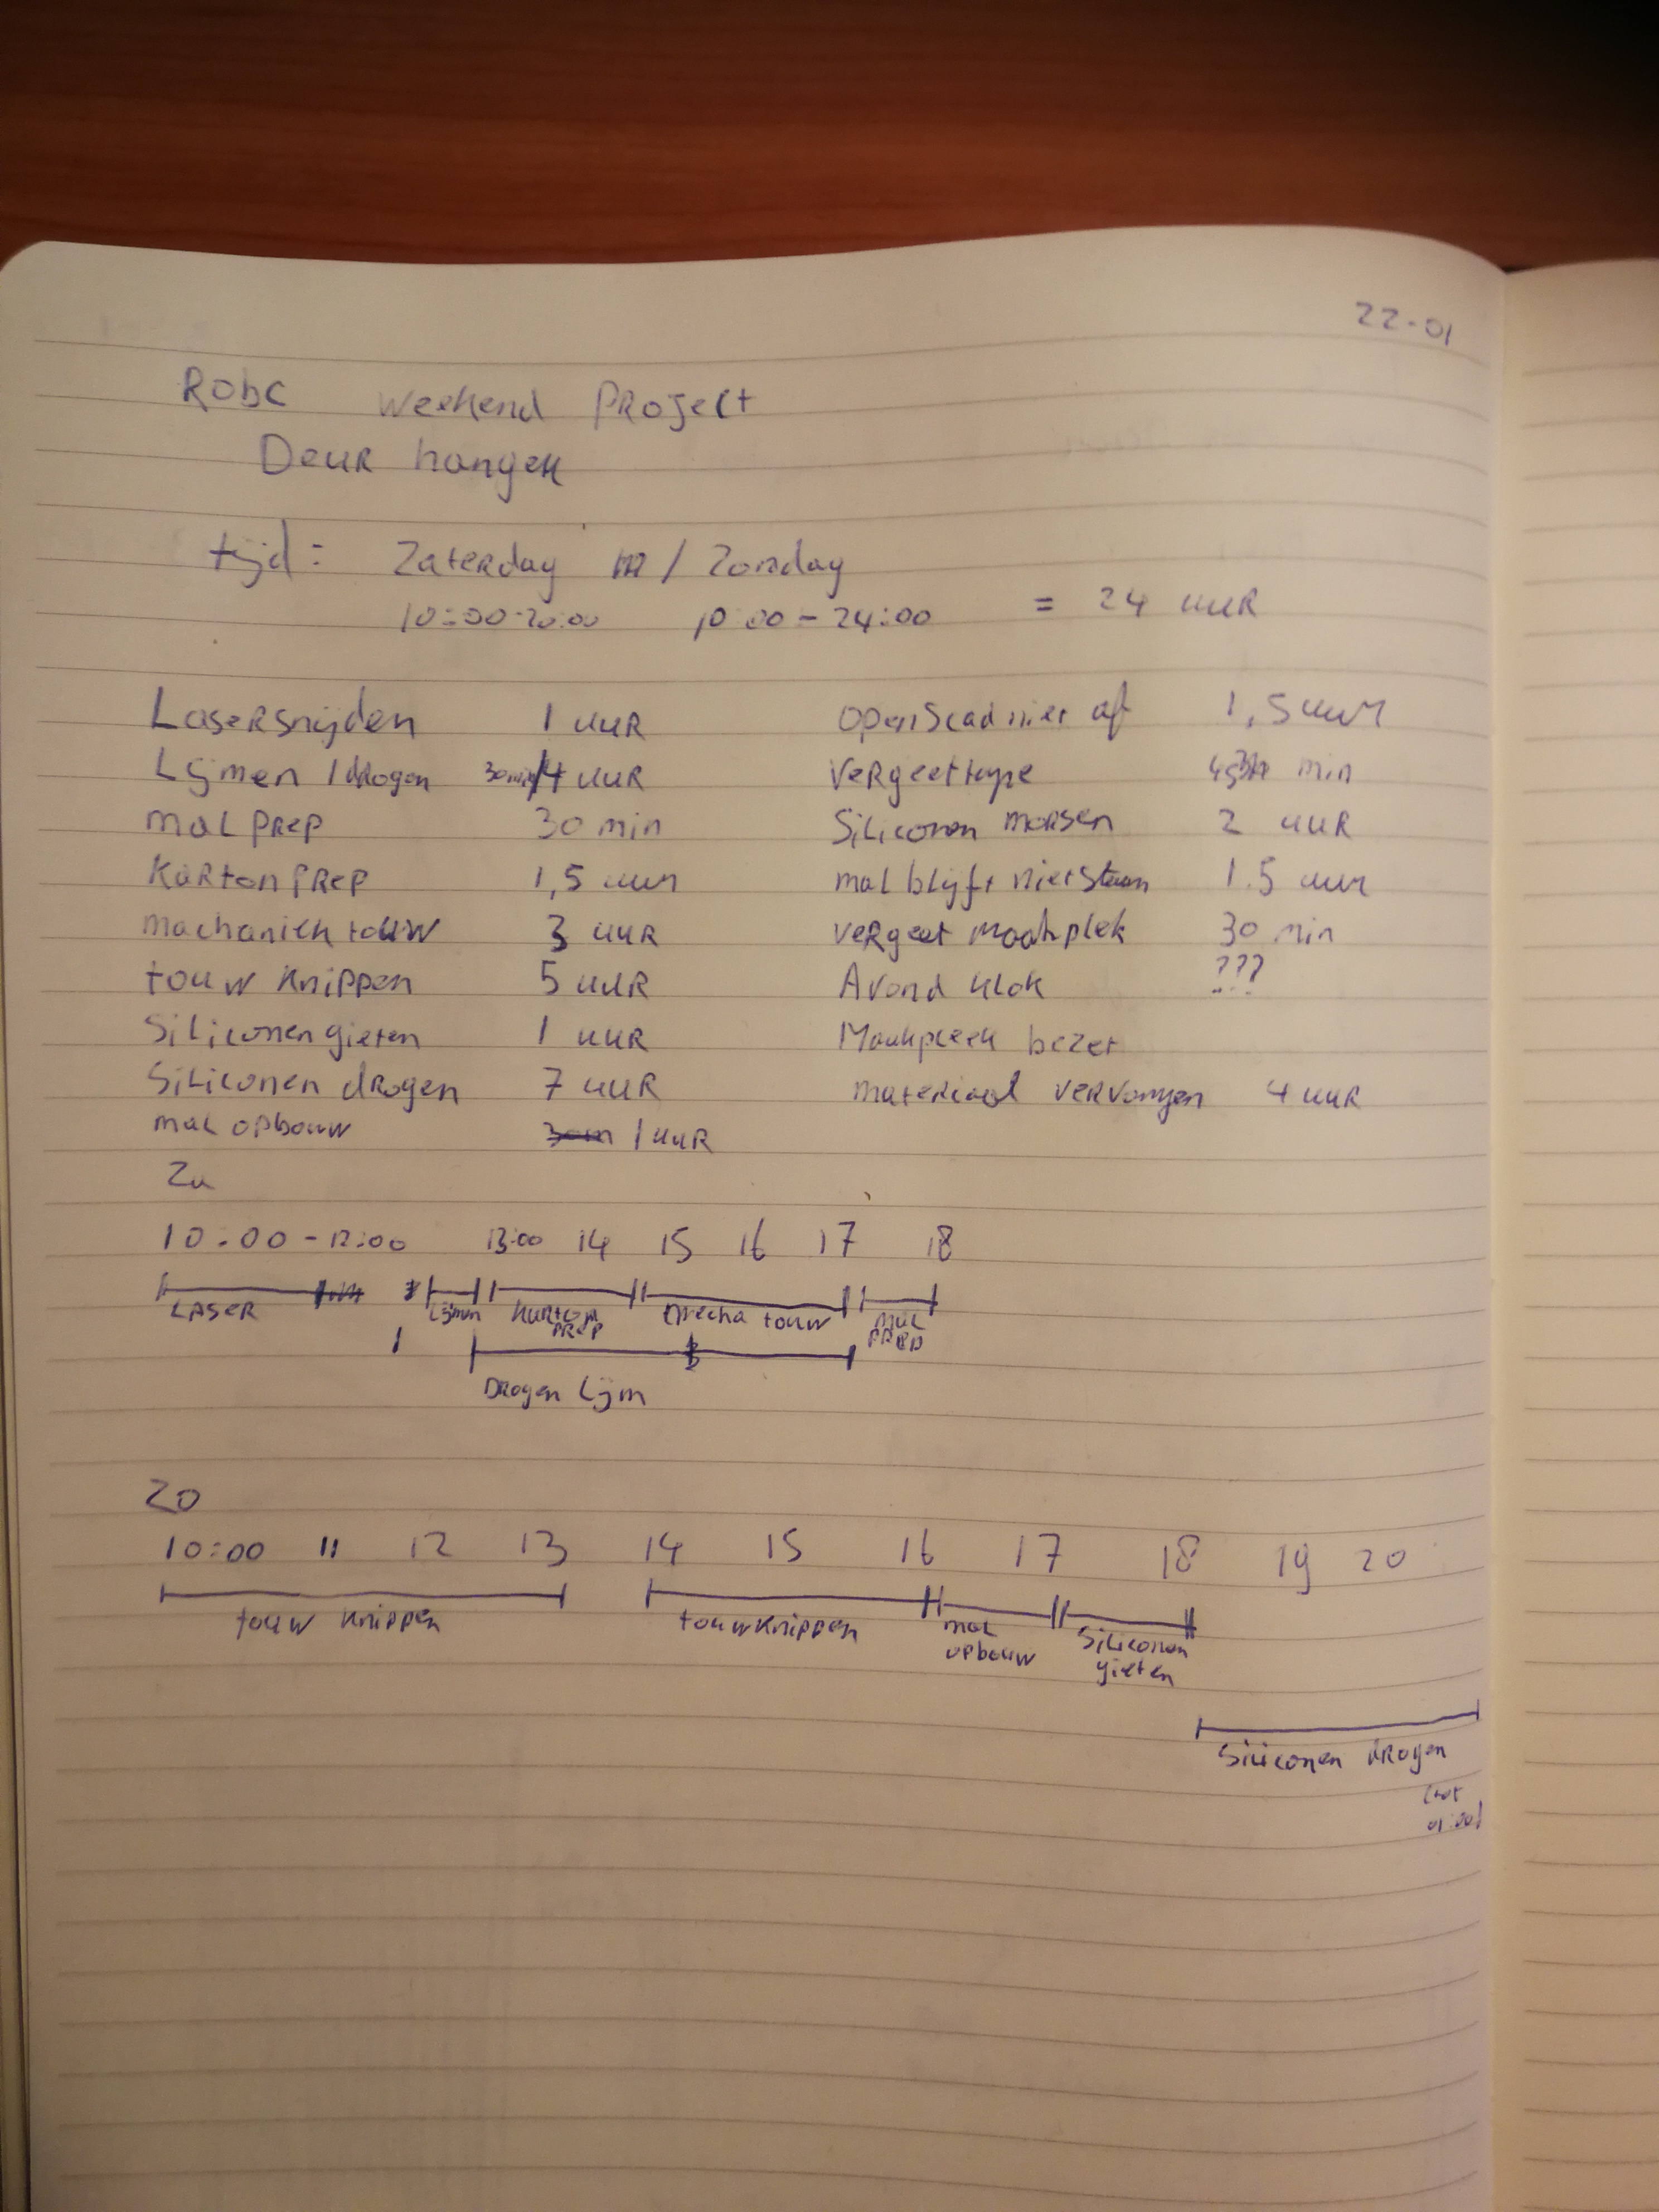 22-01
Robc weekend project
Deur hangen
tijd: Zaterdag / Zondag
10:00-20:00 10:00-24:00 = 24 uur
Lasersnijden 1 uur openscad niet af 1,5 uur
Lijmen / drogen 30min/4 uur vergeet tape 45 min
mal prep 30 min Siliconen morsen 2 uur
Karton prep 1,5 uur mal blijft niet staan 1.5 uur
machaniek touw 3 uur vergeet maakplek 30 min
touw knippen 5 uur Avond klok ???
Siliconen gieten 1 uur Maakpleek bezet
Siliconen drogen 7 uur materiaal vervangen 4 uur
mal opbouw 30m 1 uur
Za
10:00-12:00 13:00 14 15 16 17 18
LASER Lijmen karton prep mecha touw mal prep
Drogen Lijm
Zo
10:00 11 12 13 14 15 16 17 18 19 20
touw knippen touw knippen mal opbouw Siliconen gieten
Siliconen drogen
(tot
01:00)